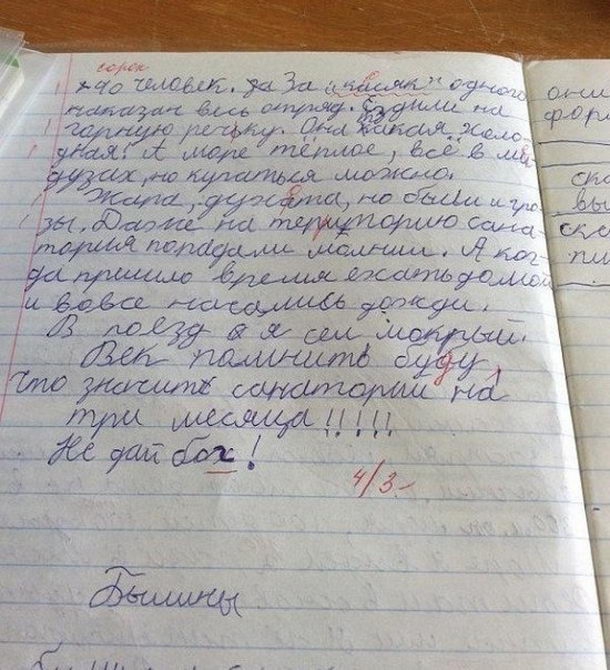 сорок
40 человек. Да За "касяк" одного
наказан весь отряд. Ездили на
горную речьку. Она такая холо-
дная! А море тёплое, всё в ме-
дузах, но купаться можно.
Жара, духата, но были и гро-
зы. Даже на территорию сана-
тория попадали молнии. А ког-
да пришло время ехать домой
и вовсе начались дожди.
В поезд я сел мокрый.
Век помнить буду,
что значить санаторий на
три месяца!!!!!
Не дай бох!
4/3-
Былины
они
фор
ска
вы
ска